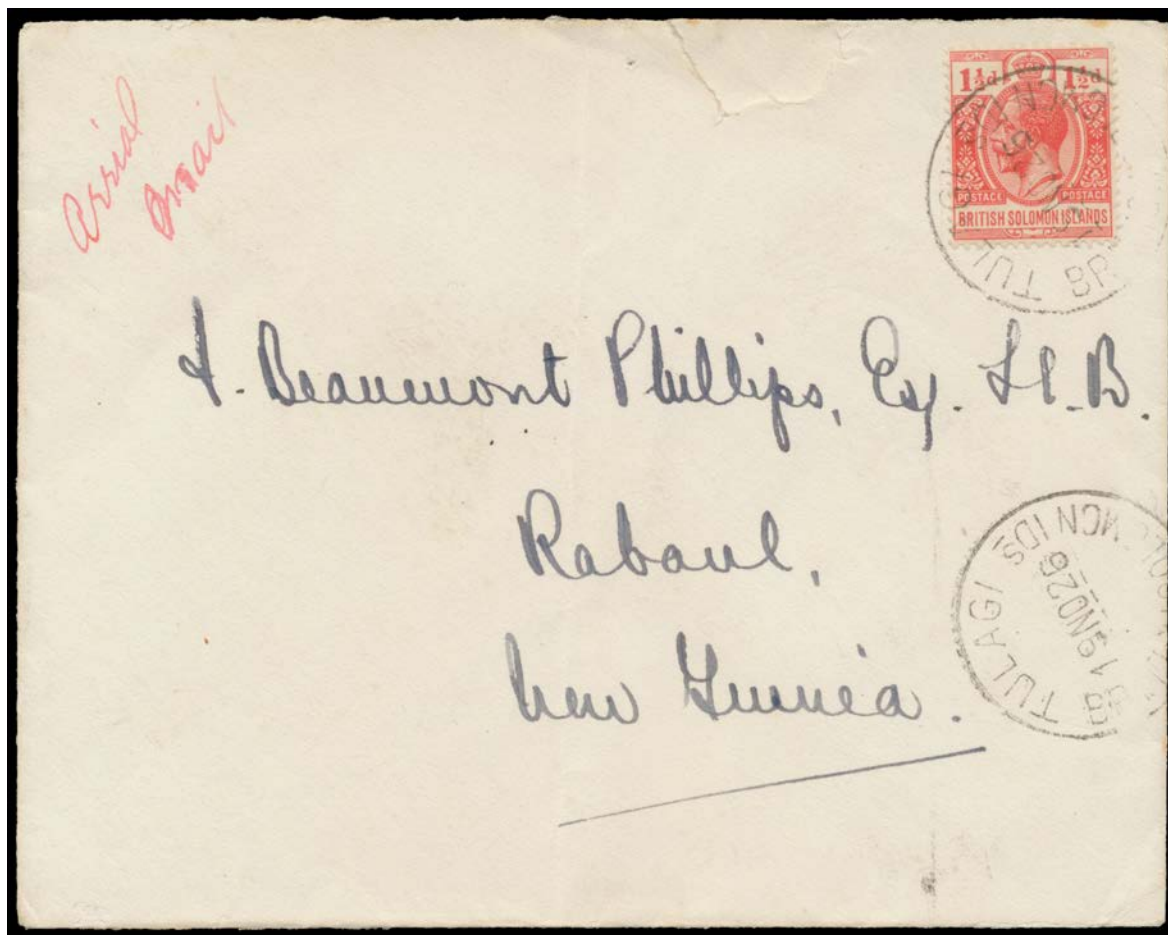 Aerial
mail
1½d 1½d
POSTAGE POSTAGE
BRITISH SOLOMON ISLANDS
TULAGI BR
F. Beaumont Phillips, Esq. Ll.B.
Rabaul,
New Guinea.
TULAGI BR SOLOMON IDS
19NO26